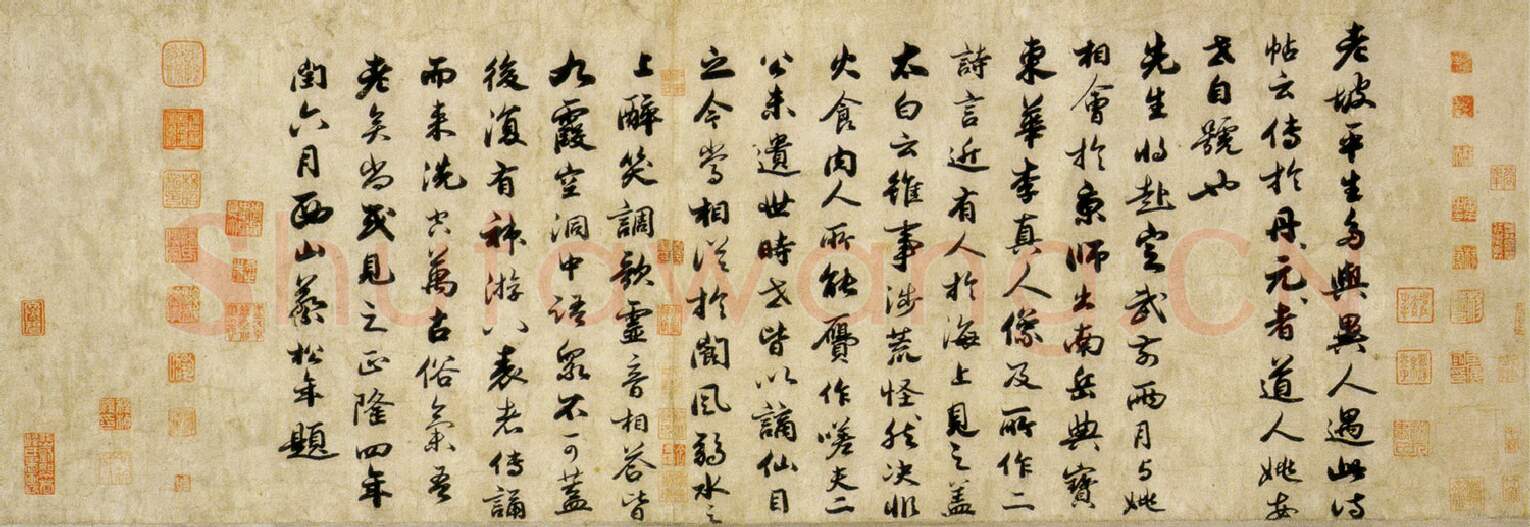 老坡平生多與異人遇此诗
帖云传於丹元者道人姚安
世自號也
先生将赴定武前兩月与姚
相會於京師出南岳典寶
東華李真人像及所作二
詩言近有人於海上見之蓋
太白云雖事涉荒怪然決非
火食肉人所能贋作嗟夫二
公未遺世時世皆以謫仙目
之今當相從於閬風弱水之
上醉笑調歌靈音相答皆
九霞空洞中语衆不可蓋
後復有神游八表者傳誦
而来洗空萬古俗氣吾
老矣尚或見之正隆四年
閏六月西山蔡松年題
Shufawang.CN